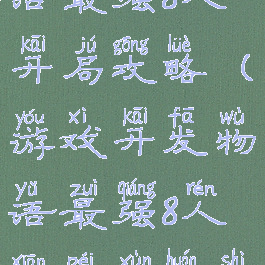 语最强8人
kāi jú gōng lüè
开局攻略(
yóu xì kāi fā wù
游戏开发物
yǔ zuì qiáng rén
语最强8人
xiān péi xùn huán shì